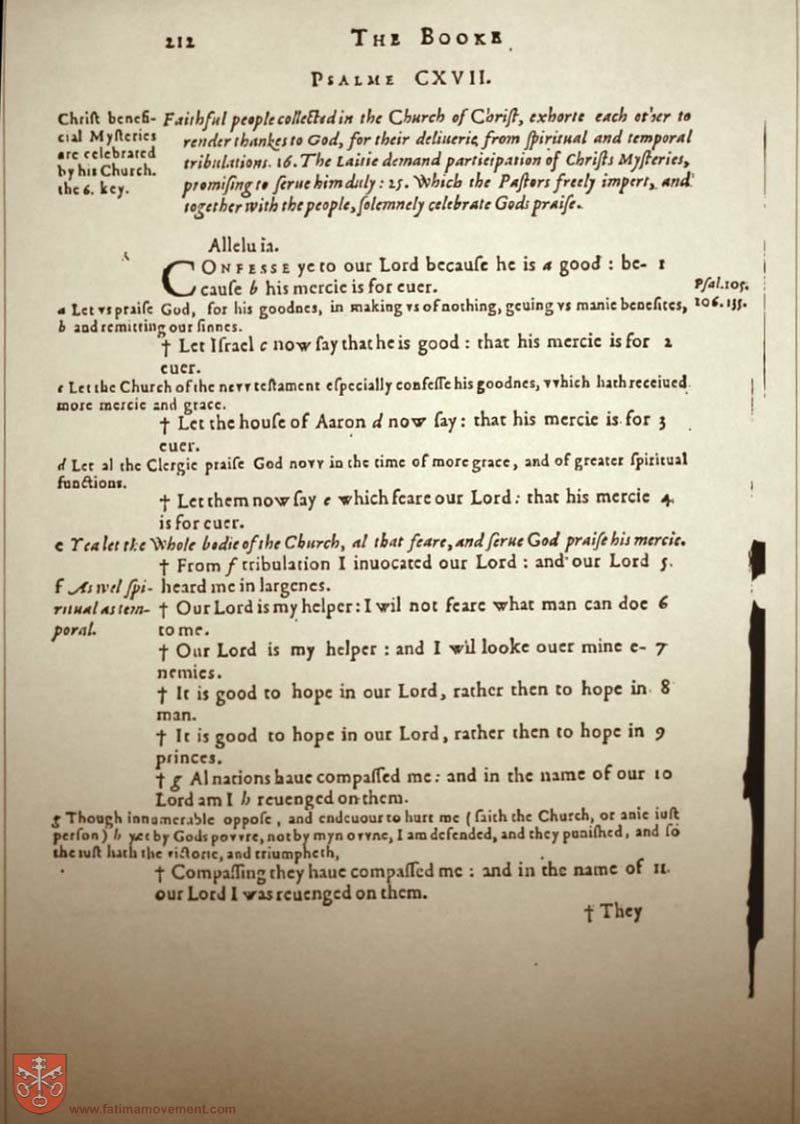 212 THE BOOKE
PSALME CXVII.
Chriſt benefi-
cial Myſteries
are celebrated
by his Church.
the 6. key.
Faithful people collected in the Church of Chriſt, exhorte each other to
render thankes to God, for their deliuerie from ſpiritual and temporal
tribulations. 16. The Laitie demand participation of Chriſts Myſteries,
promiſing to ſerue him duly: 25. Which the Paſtors freely impert, and
together with the people, ſolemnely celebrate Gods praiſe.
Alleluia.
CONFESSE ye to our Lord becauſe he is a good : be- 1
cauſe b his mercie is for euer.
Pſal. 105.
106. 135.
a Let vs praiſe God, for his goodnes, in making vs of nothing, geuing vs manie benefites,
b and remitting our ſinnes.
† Let Iſrael c now ſay that he is good : that his mercie is for 2
euer.
c Let the Church of the nevv teſtament eſpecially confeſſe his goodnes, vvhich hath receiued
more mercie and grace.
† Let the houſe of Aaron d now ſay : that his mercie is for 3
euer.
d Let al the Clergie praiſe God novv in the time of more grace, and of greater ſpiritual
functions.
† Let them now ſay e which feare our Lord : that his mercie 4.
is for euer.
e Yea let the Whole bodie of the Church, al that feare, and ſerue God praiſe his mercie.
† From f tribulation I inuocated our Lord : and our Lord 5.
heard me in largenes.
f As wel ſpi-
ritual as tem-
poral.
† Our Lord is my helper : I wil not feare what man can doe 6
to me.
† Our Lord is my helper : and I wil looke ouer mine e- 7
nemies.
† It is good to hope in our Lord, rather then to hope in 8
man.
† It is good to hope in our Lord, rather then to hope in 9
princes.
† g Al nations haue compaſſed me : and in the name of our 10
Lord am I h reuenged on them.
g Though innumerable oppoſe, and endeuour to hurt me (ſaith the Church, or anie iuſt
perſon) h yet by Gods povvre, not by myn ovvne, I am defended, and they puniſhed, and ſo
the iuſt hath the victorie, and triumpheth,
† Compaſſing they haue compaſſed me : and in the name of 11.
our Lord I was reuenged on them.
† They
www.fatimamovement.com